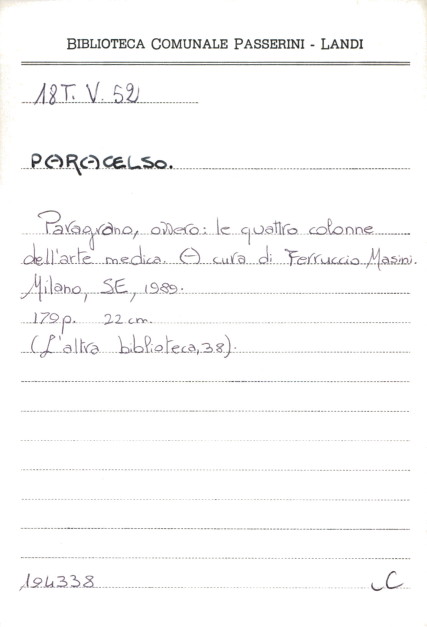 BIBLIOTECA COMUNALE PASSERINI - LANDI
18T. V. 52
PARACELSO.
Paragrano, ovvero: le quattro colonne
dell'arte medica. A cura di Ferruccio Masini.
Milano, SE, 1989.
179 p. 22 cm.
(L'altra biblioteca, 38).
194338
C